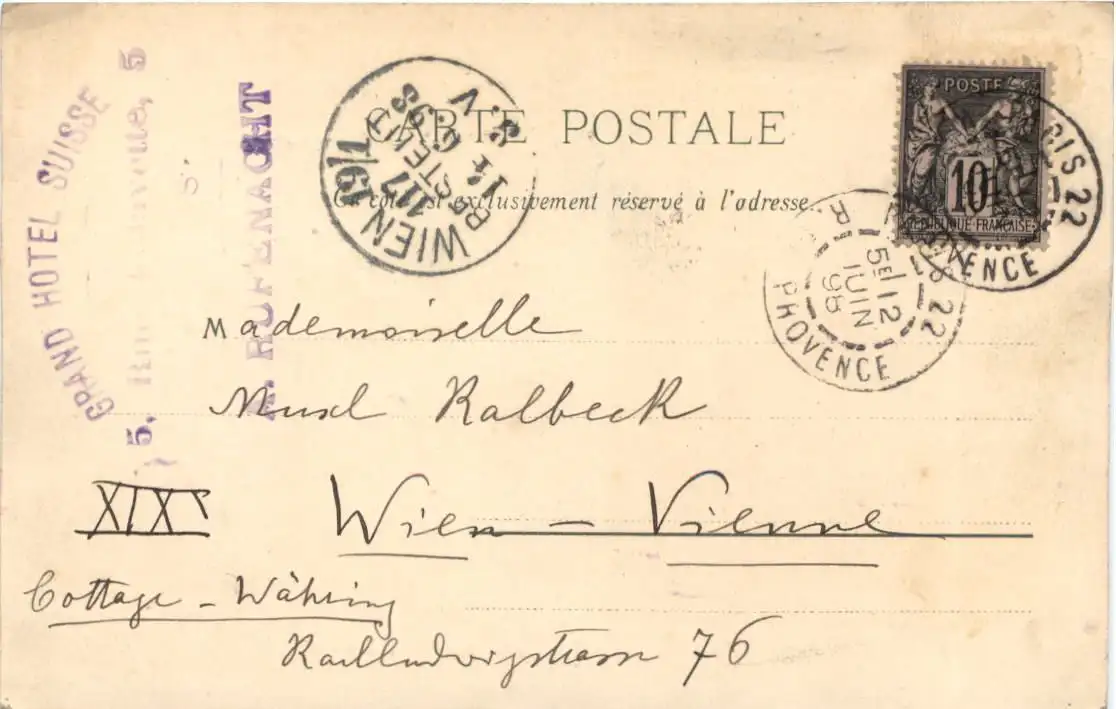 GRAND HOTEL SUISSE
5, Rue Lafayette, 5
A. RUFENACHT
CARTE POSTALE
Ce côté est exclusivement réservé à l'adresse.
WIEN 19/1
117
14. 6. 98
3. V
BESTELLT
POSTE
10
REPUBLIQUE FRANÇAISE
PARIS 22
PROVENCE
PARIS 22
5E 12
JUIN
98
R. PROVENCE
Mademoiselle
Musel Kalbeck
XIX
Wien - Vienne
Cottage - Währing
Karlludwigstrasse 76